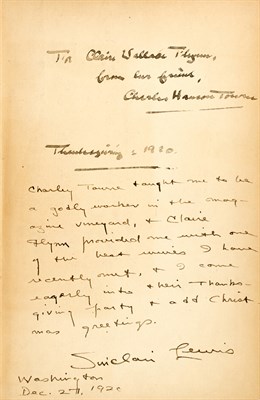 To Claire Wallace Flynn,
from her friend,
Charles Hanson Towne
Thanksgiving : 1920.
Charley Towne taught me to be
a godly worker in the mag-
azine vineyard, & Claire
Flynn provided me with one
of the best unies I have
recently met, & I come
eagerly into their Thanks-
giving party & add Christ-
mas greetings.
Sinclair Lewis
Washington
Dec. 2, 1920